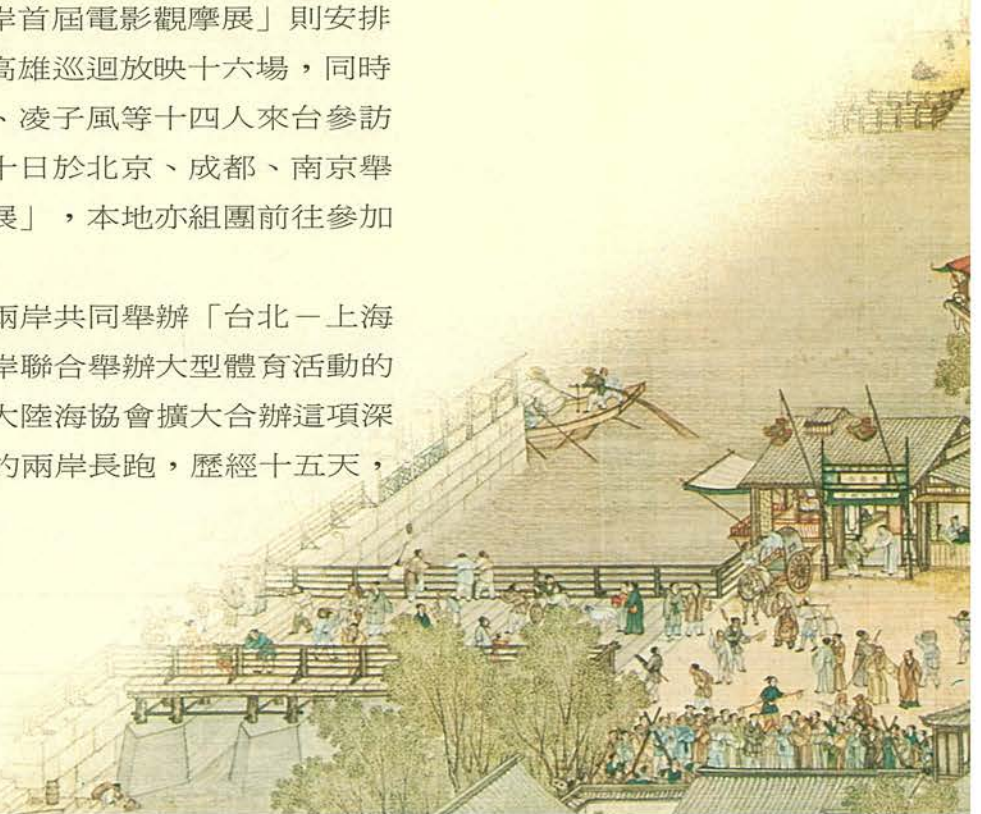 岸首屆電影觀摩展」則安排
高雄巡迴放映十六場，同時
、凌子風等十四人來台參訪
十日於北京、成都、南京舉
展」，本地亦組團前往參加
兩岸共同舉辦「台北－上海
岸聯合舉辦大型體育活動的
大陸海協會擴大合辦這項深
的兩岸長跑，歷經十五天，